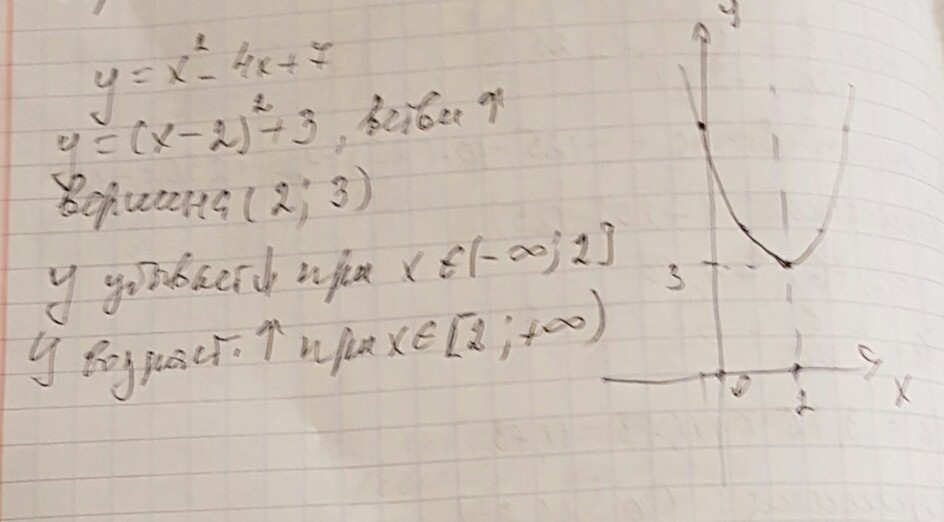 y = x² - 4x + 7
y = (x - 2)² + 3, ветви ↑
Вершина (2; 3)
y убывает ↓ при x ∈ (-∞; 2]
y возраст. ↑ при x ∈ [2; +∞)
y
3
0
2
x